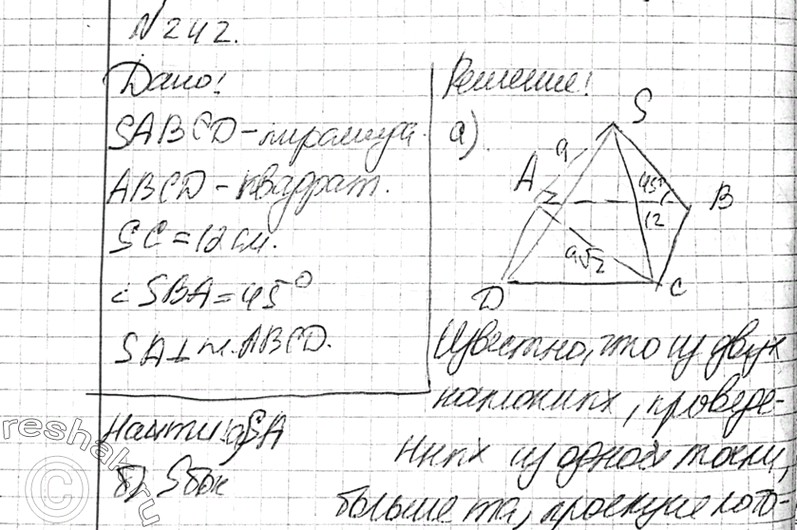 N 242.
Дано:
SABCD - пирамида.
ABCD - квадрат.
SC = 12 см.
∠SBA = 45°
SA ⊥ пл. ABCD.
Найти: а) SA
б) Sбок
Решение:
а)
S
a
A
45°
B
12
a√2
D
C
Известно, что из двух
наклонных, проведе-
нных из одной точки,
больше та, проекция кото-
reshak.ru
©